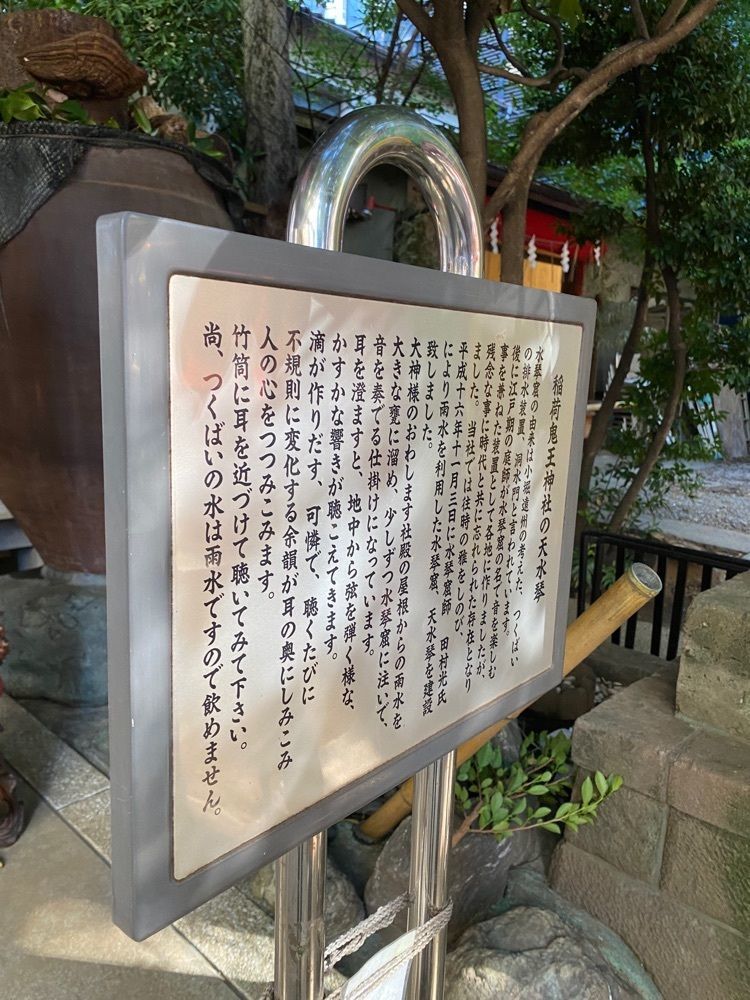 稲荷鬼王神社の天水琴
水琴窟の由来は小堀遠州の考えた、つくばい
の排水装置、洞水門と言われています。
後に江戸期の庭師が水琴窟の名で音を楽しむ
事を兼ねた装置として各地に作りましたが、
残念な事に時代と共に忘れられた存在となり
ました。当社では往時の雅をしのび、
平成十六年十一月三日に水琴窟師　田村光氏
により雨水を利用した水琴窟、天水琴を建設
致しました。
大神様のおわします社殿の屋根からの雨水を
大きな甕に溜め、少しずつ水琴窟に注いで、
音を奏でる仕掛けになっています。
耳を澄ますと、地中から弦を弾く様な、
かすかな響きが聴こえてきます。
滴が作りだす、可憐で、聴くたびに
不規則に変化する余韻が耳の奥にしみこみ
人の心をつつみこみます。
竹筒に耳を近づけて聴いてみて下さい。
尚、つくばいの水は雨水ですので飲めません。